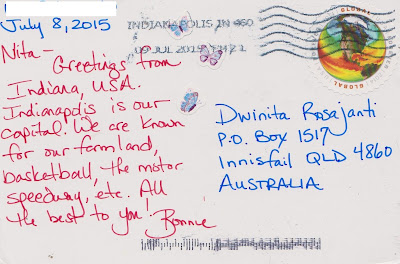 July 8, 2015
INDIANAPOLIS IN 460
09 JUL 2015 PM 21
GLOBAL
GLOBAL
Nita-
Greetings from
Indiana, USA.
Indianapolis is our
capital. We are known
for our farmland,
basketball, the motor
speedway, etc. All
the best to you!
Bonnie
Dwinita Rosajanti
P.O. Box 1517
Innisfail QLD 4860
AUSTRALIA